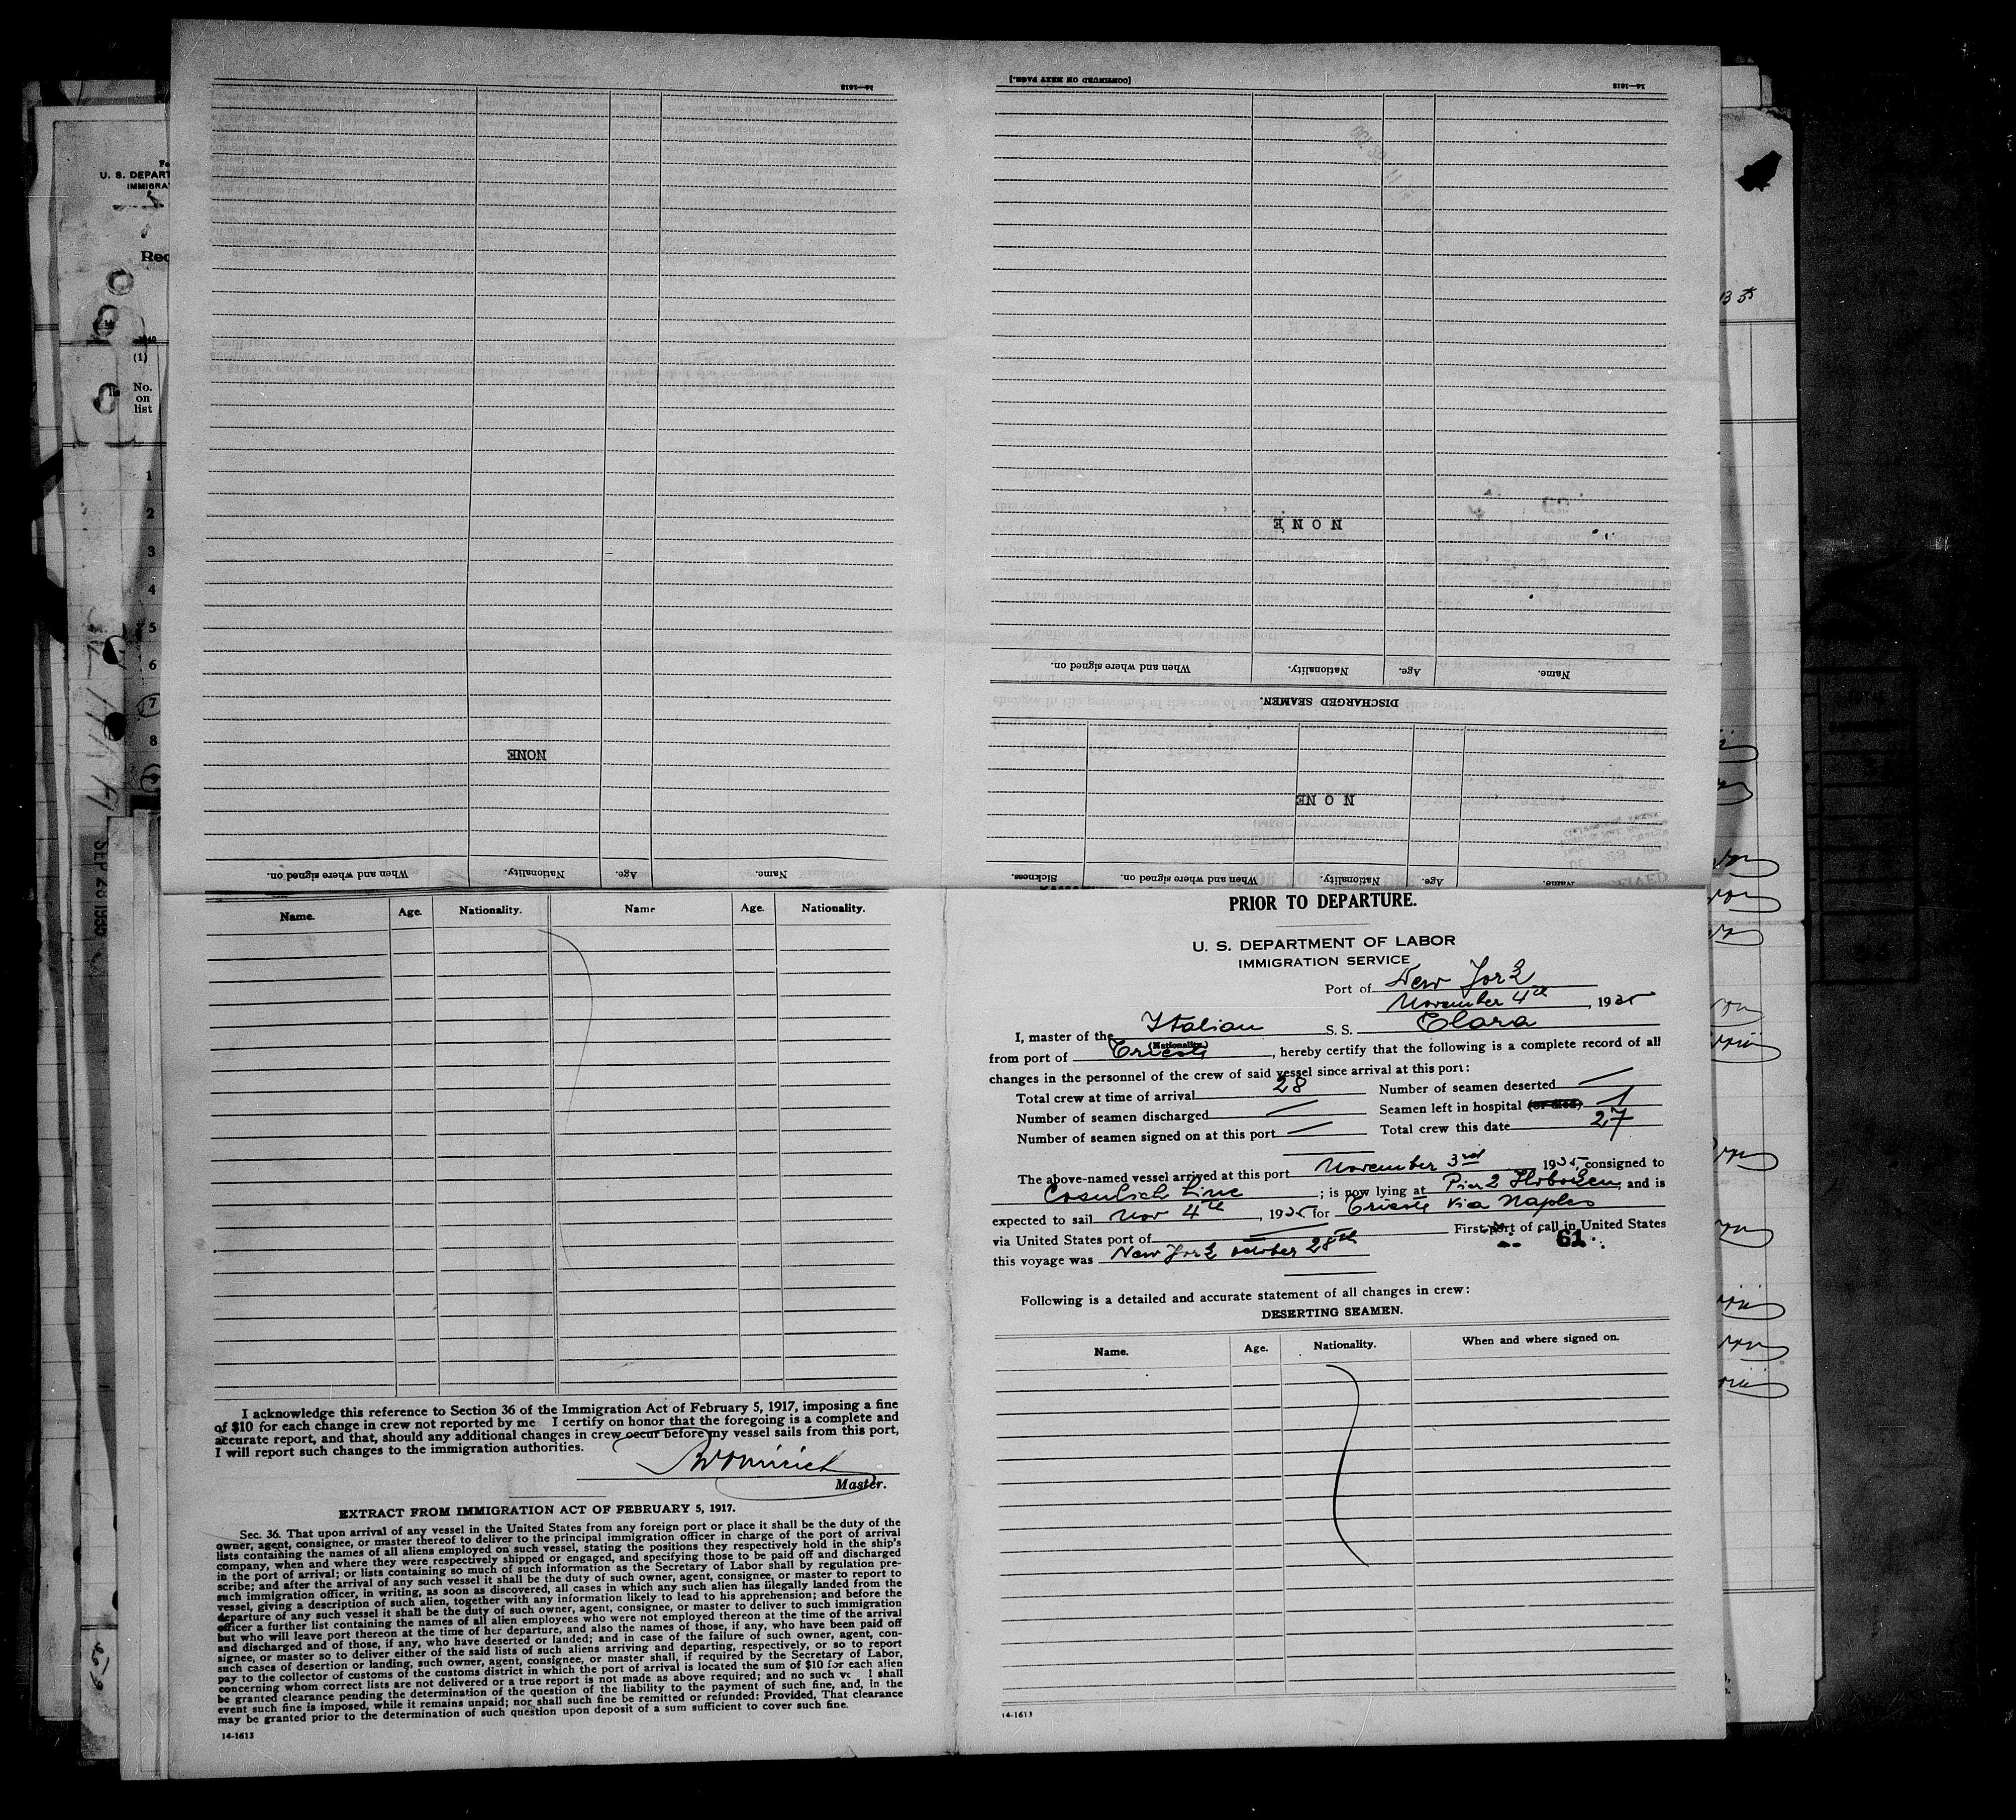 [CONTINUED ON NEXT PAGE.]
14—1613
14—1613
NONE
When and where signed on. Nationality. Age. Name.
DISCHARGED SEAMEN.
NONE
NONE
When and where signed on. Nationality. Age. Name.
Sickness. When and where signed on. Nationality. Age. Name.
U. S. DEPART
IMMIGRA
Rec
(1)
No.
on
list
1
2
3
4
5
6
7
8
SEP 28 1935
Name. Age. Nationality. Name Age. Nationality.
I acknowledge this reference to Section 36 of the Immigration Act of February 5, 1917, imposing a fine
of $10 for each change in crew not reported by me I certify on honor that the foregoing is a complete and
accurate report, and that, should any additional changes in crew occur before my vessel sails from this port,
I will report such changes to the immigration authorities.
Master.
EXTRACT FROM IMMIGRATION ACT OF FEBRUARY 5, 1917.
Sec. 36. That upon arrival of any vessel in the United States from any foreign port or place it shall be the duty of the
owner, agent, consignee, or master thereof to deliver to the principal immigration officer in charge of the port of arrival
lists containing the names of all aliens employed on such vessel, stating the positions they respectively hold in the ship's
company, when and where they were respectively shipped or engaged, and specifying those to be paid off and discharged
in the port of arrival; or lists containing so much of such information as the Secretary of Labor shall by regulation pre-
scribe; and after the arrival of any such vessel it shall be the duty of such owner, agent, consignee, or master to report to
such immigration officer, in writing, as soon as discovered, all cases in which any such alien has illegally landed from the
vessel, giving a description of such alien, together with any information likely to lead to his apprehension; and before the
departure of any such vessel it shall be the duty of such owner, agent, consignee, or master to deliver to such immigration
officer a further list containing the names of all alien employees who were not employed thereon at the time of the arrival
but who will leave port thereon at the time of her departure, and also the names of those, if any, who have been paid off
and discharged and of those, if any, who have deserted or landed; and in case of the failure of such owner, agent, con-
signee, or master so to deliver either of the said lists of such aliens arriving and departing, respectively, or so to report
such cases of desertion or landing, such owner, agent, consignee, or master shall, if required by the Secretary of Labor,
pay to the collector of customs of the customs district in which the port of arrival is located the sum of $10 for each alien
concerning whom correct lists are not delivered or a true report is not made as above required; and no such ve l shall
be granted clearance pending the determination of the question of the liability to the payment of such fine, and, in the
event such fine is imposed, while it remains unpaid; nor shall such fine be remitted or refunded: Provided, That clearance
may be granted prior to the determination of such question upon deposit of a sum sufficient to cover such fine.
14-1613
PRIOR TO DEPARTURE.
U. S. DEPARTMENT OF LABOR
IMMIGRATION SERVICE
Port of New York
November 4th, 1935
I, master of the Italian S. S. Clara
(Nationality.)
from port of Trieste, hereby certify that the following is a complete record of all
changes in the personnel of the crew of said vessel since arrival at this port:
Total crew at time of arrival 28 Number of seamen deserted —
Number of seamen discharged — Seamen left in hospital (or died) 1
Number of seamen signed on at this port — Total crew this date 27
The above-named vessel arrived at this port November 3rd 1935, consigned to
Cosulich Line; is now lying at Pier 2 Hoboken, and is
expected to sail Nov 4th, 1935 for Trieste via Naples
via United States port of — First port of call in United States
61
this voyage was New York october 28th
Following is a detailed and accurate statement of all changes in crew:
DESERTING SEAMEN.
Name. Age. Nationality. When and where signed on.
14-1613